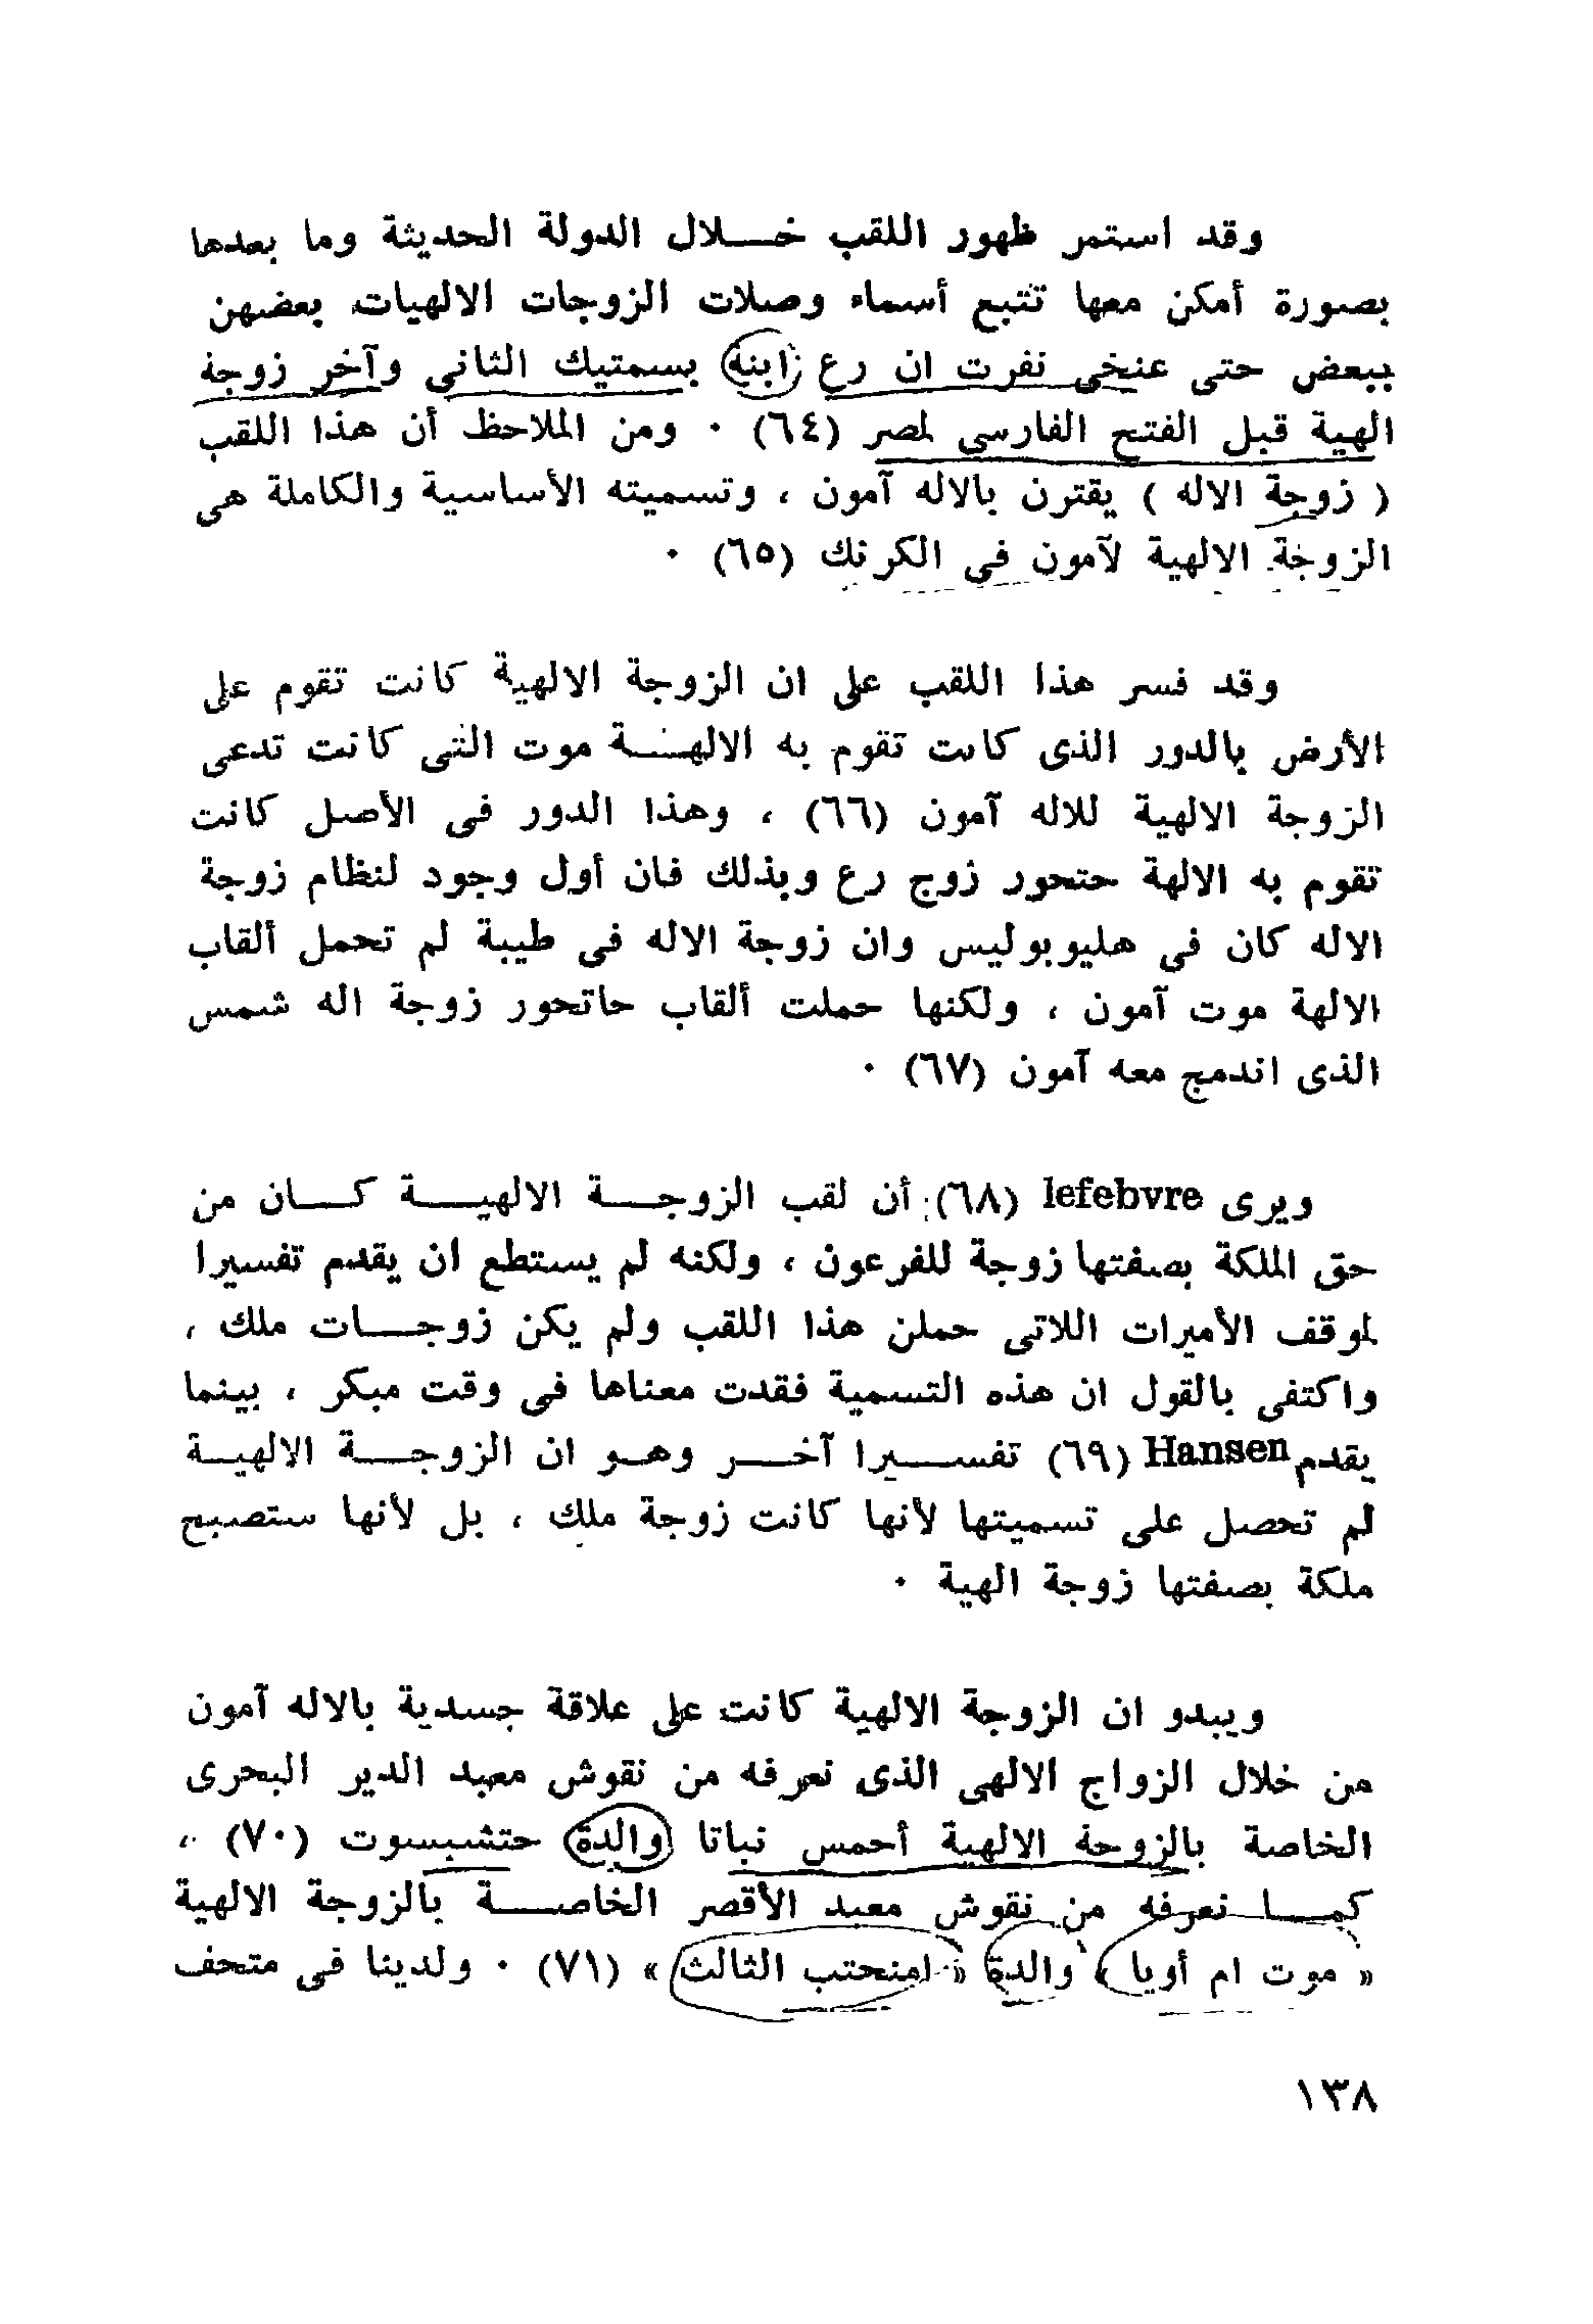 وقد استمر ظهور اللقب خـــلال الدولة الحديثة وما بعدها
بصورة أمكن معها تتبع أسماء وصلات الزوجات الالهيات بعضهن
ببعض حتى عنخى نفرت ان رع ابنة بسمتيك الثانى وآخر زوجة
الهية قبل الفتح الفارسى لمصر (٦٤) ٠ ومن الملاحظ أن هذا اللقب
( زوجة الاله ) يقترن بالاله آمون ، وتسميته الأساسية والكاملة هى
الزوجة الالهية لآمون فى الكرنك (٦٥) ٠
وقد فسر هذا اللقب على ان الزوجة الالهية كانت تقوم على
الأرض بالدور الذى كانت تقوم به الالهـــة موت التى كانت تدعى
الزوجة الالهية للاله آمون (٦٦) ، وهذا الدور فى الأصل كانت
تقوم به الالهة حتحور زوج رع وبذلك فان أول وجود لنظام زوجة
الاله كان فى هليوبوليس وان زوجة الاله فى طيبة لم تحمل ألقاب
الالهة موت آمون ، ولكنها حملت ألقاب حاتحور زوجة اله شمس
الذى اندمج معه آمون (٦٧) ٠
ويرى lefebvre (٦٨) أن لقب الزوجـــة الالهيـــة كـــان من
حق الملكة بصفتها زوجة للفرعون ، ولكنه لم يستطع ان يقدم تفسيرا
لموقف الأميرات اللاتى حملن هذا اللقب ولم يكن زوجـــات ملك ،
واكتفى بالقول ان هذه التسمية فقدت معناها فى وقت مبكر ، بينما
يقدم Hansen (٦٩) تفســـيرا آخـــر وهـو ان الزوجـــة الالهيـة
لم تحصل على تسميتها لأنها كانت زوجة ملك ، بل لأنها ستصبح
ملكة بصفتها زوجة الهية ٠
ويبدو ان الزوجة الالهية كانت على علاقة جسدية بالاله آمون
من خلال الزواج الالهى الذى نعرفه من نقوش معبد الدير البحرى
الخاصة بالزوجة الالهية أحمس نباتا والدة حتشبسوت (٧٠) ،
كمـــا نعرفه من نقوش معبد الأقصر الخاصـــة بالزوجة الالهية
« موت ام أويا » والدة « امنحتب الثالث » (٧١) ٠ ولدينا فى متحف
١٣٨